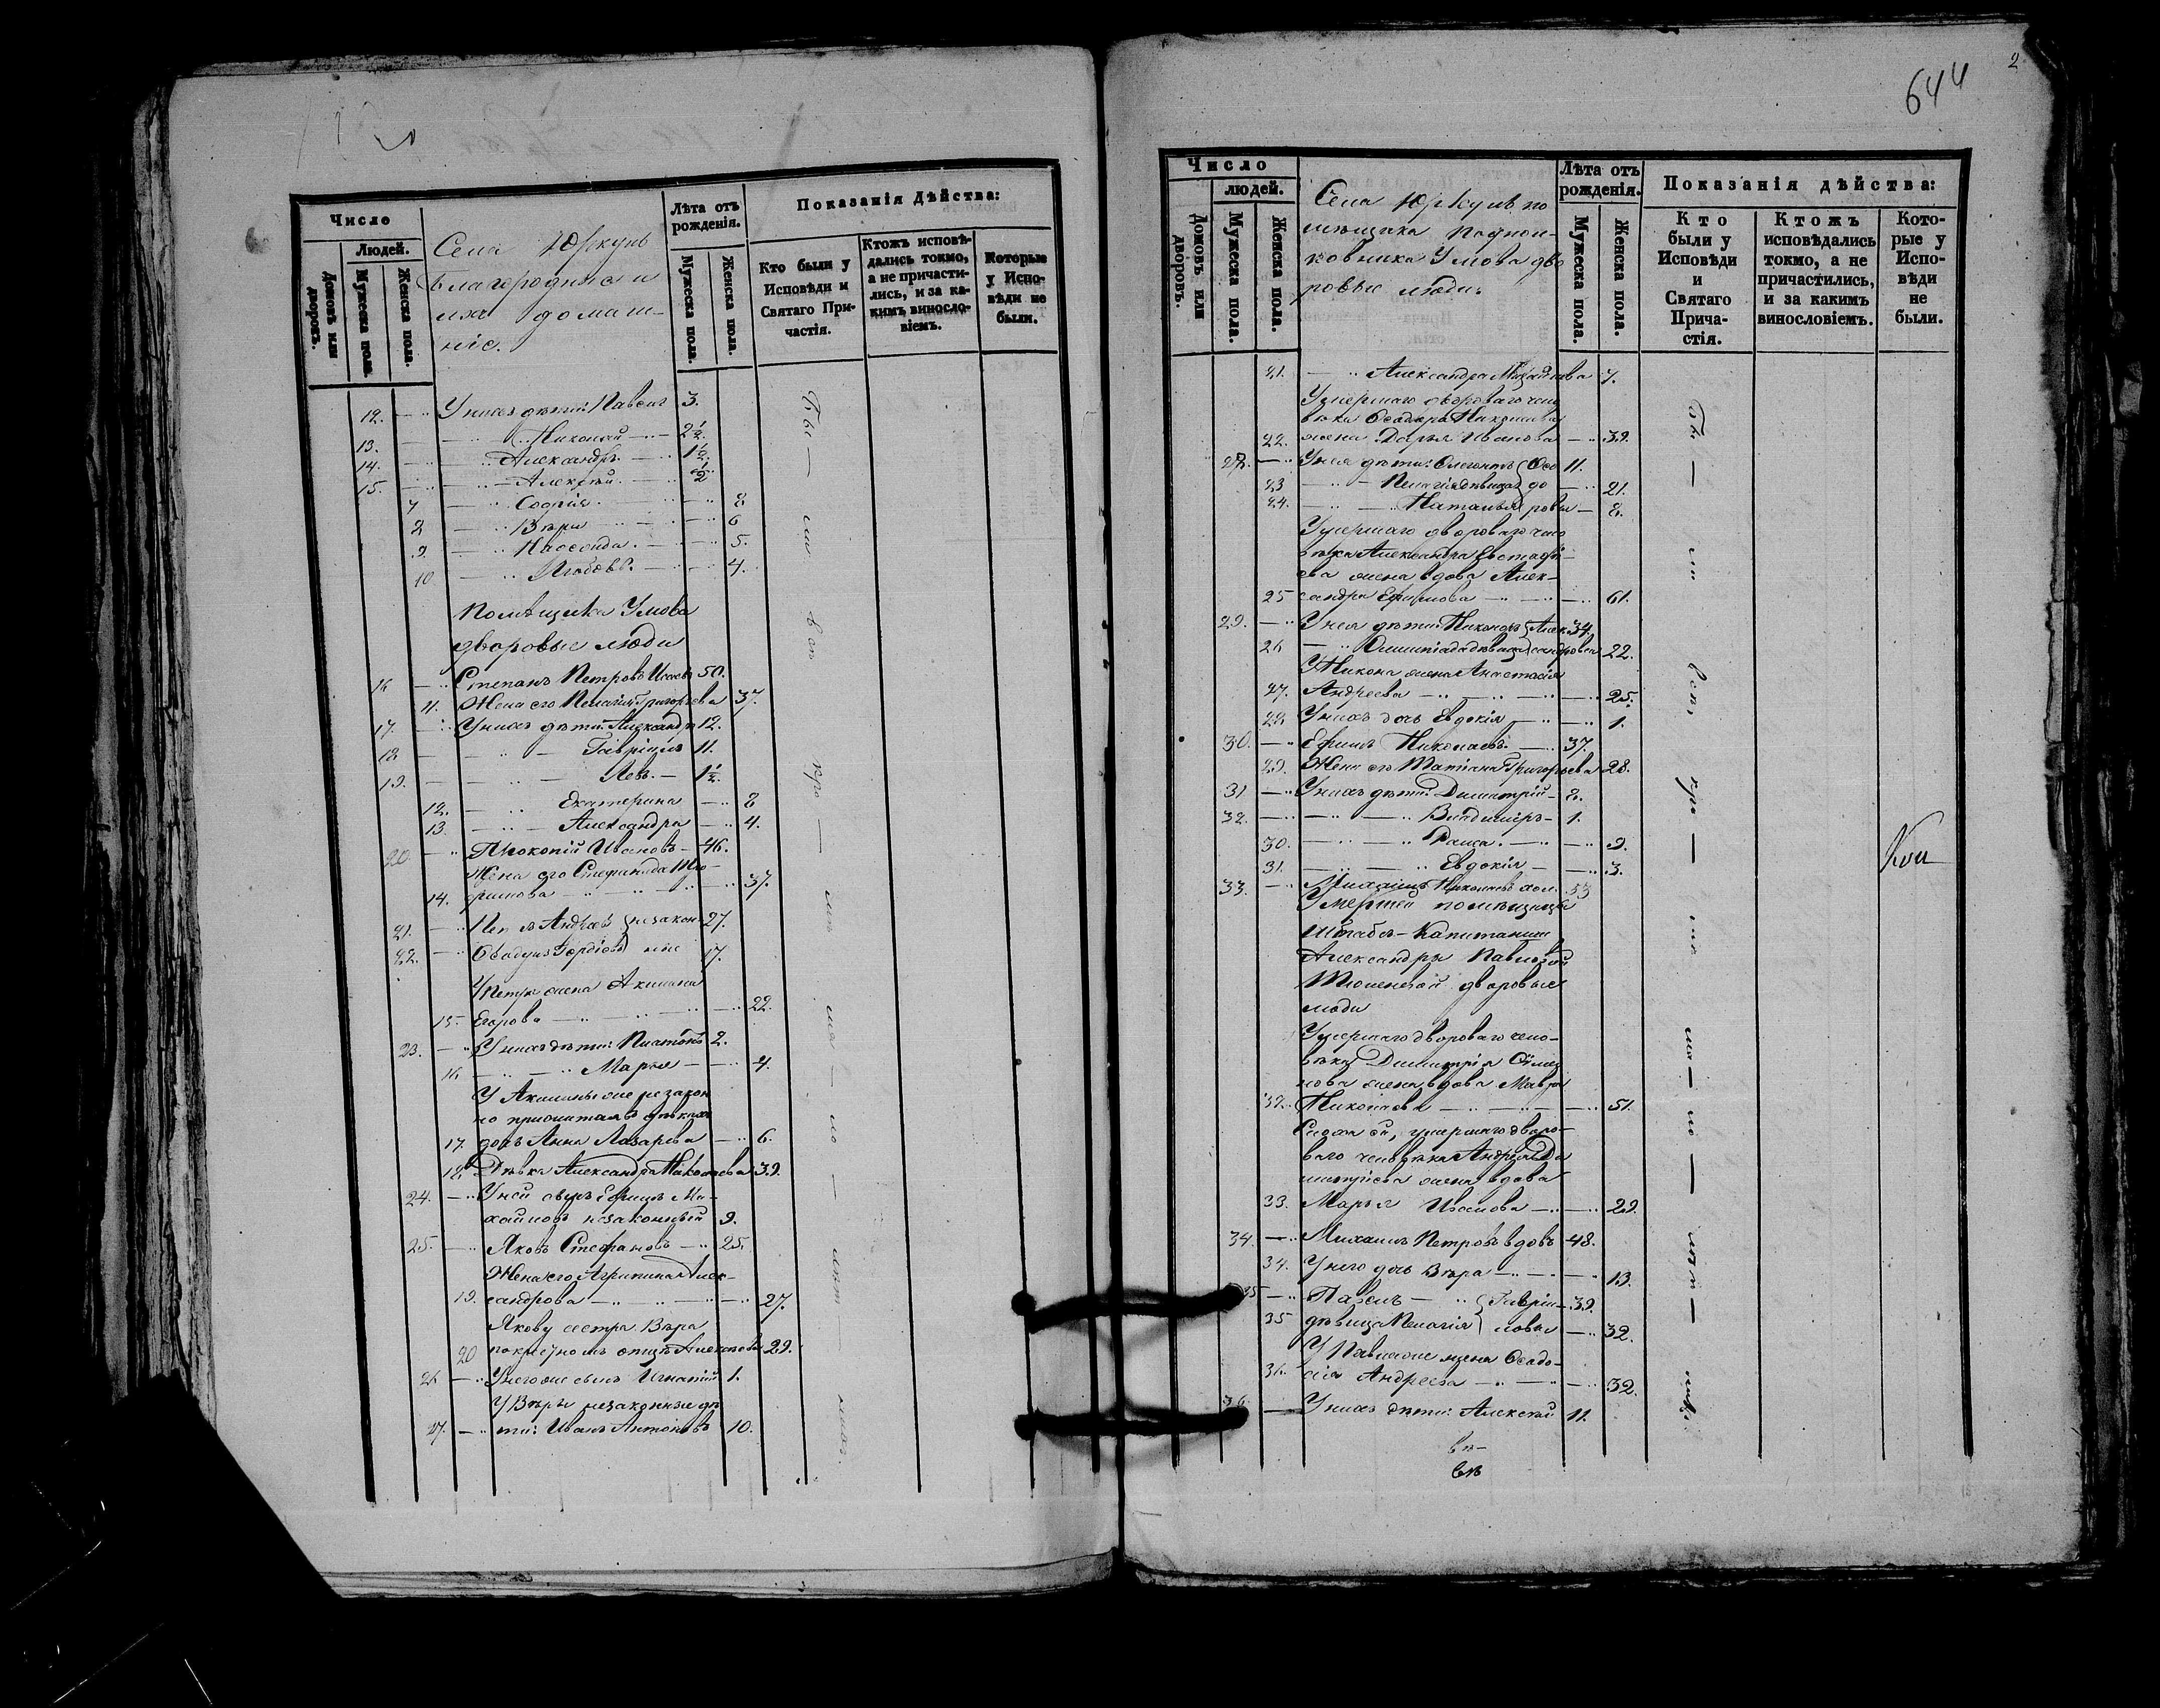 Число
Людей.
Домовъ или дворовъ.
Мужеска пола.
Женска пола.
Села Юркуль
благородные и
ихъ домаш-
ніе.
Лѣта отъ рожденія.
Мужеска пола.
Женска пола.
Показанія Дѣйства:
Кто были у Исповѣди и Святаго При-частія.
Ктожъ исповѣ-дались токмо, а не причасти-лись, и за ка-кимъ винослo-віемъ.
Которые у Испо-вѣди не были.
12. У нихъ дѣти: Павелъ 3.
13. Николай 2½.
14. Александръ 1½.
15. Алексѣй ½
7 Софія 8
8 Вѣра 6
9. 5.
10 Любовь 4.
Помѣщика Умова
дворовые люди
16 Степанъ Петровъ 50.
11. Жена его Пелагія Григорьева 37.
17. У нихъ дѣти: Александръ 12.
18 Гавріилъ 11.
19. Левъ 1½.
12. Екатерина 8
13. Александра 4.
20 Прокопій Ивановъ 46.
Жена его Стефанида
14. 37.
21. Андреевъ незакон- 27.
22. Гордѣевъ ные 17.
У Петра жена Акилина
15. Егорова 22.
23. У нихъ дѣти: Платонъ 2.
16 Марья 4.
У Акилины же незакон
но прижитая въ дѣвкахъ
17. дочь Анна Лазарева 6.
18. Дѣвка Александра Михайлова 39.
24. У ней сынъ Ефимъ Ми-
хайловъ незаконный 9.
25. Яковъ Стефановъ 25.
Жена его Агрипина Алек-
19. сандрова 27.
Якову сестра Вѣра
20 по крестномъ отцѣ 29.
26 У него же сынъ Игнатій 1.
У Вѣры незаконные дѣ
27. ти: Иванъ Антоновъ 10.
644
2
Число
людей.
Домовъ или дворовъ.
Мужеска пола.
Женска пола.
Села Юркуль по
мѣщика Подпол-
ковника Умова дво
ровые люди.
Лѣта отъ рожденія.
Мужеска пола.
Женска пола.
Показанія дѣйства:
Кто были у Исповѣди и Святаго Прича-стія.
Ктожъ исповѣдались токмо, а не причастились, и за какимъ винословіемъ.
Кото-рые у Испо-вѣди не были.
21. Александра Михайлова 7.
Умершаго двороваго чело
вѣка Ѳеодора Николаева
22. жена Дарья Иванова 39.
28. У нея дѣти: Ѳео 11.
23 Пелагія дѣвица до 21.
24. Наталья ровы 8.
Умершаго двороваго чело
вѣка Александра Евстафі-
ева жена вдова Алек-
25 сандра Ефимова 61.
29. У нея дѣти: Никонъ Алек 34.
26 Олимпіада дѣвица сандровы 22.
У Никона жена Анастасія
27. Андреева 25.
28. У нихъ дочь Евдокія 1.
30. Ефимъ Николаевъ 37.
29. Жена его Татіана Григорьева 28.
31 У нихъ дѣти: Димитрій 8.
32. Владиміръ 1.
30. Раиса 9.
31. Евдокія 3.
33. Михаилъ Николаевъ хол. 53
Умершей помѣщицы
Штабсъ-Капитанши
Александры Павловой
дворовые
люди
Умершаго двороваго чело-
вѣка Димитрія
жена вдова Мавра
32. Николаева 51.
Сноха ей, умершаго дворо-
ваго человѣка Андрея Ди
митріева жена вдова
33. Марья Иванова 29.
34. Михаилъ Петровъ вдовъ 48.
34. У него дочь Вѣра 13.
35 Павелъ Гавріи- 39.
35 дѣвица Пелагія ловы 32.
У Павла же жена Ѳеодо-
36. сія Андреева 32.
36. У нихъ дѣти: Алексѣй 11.